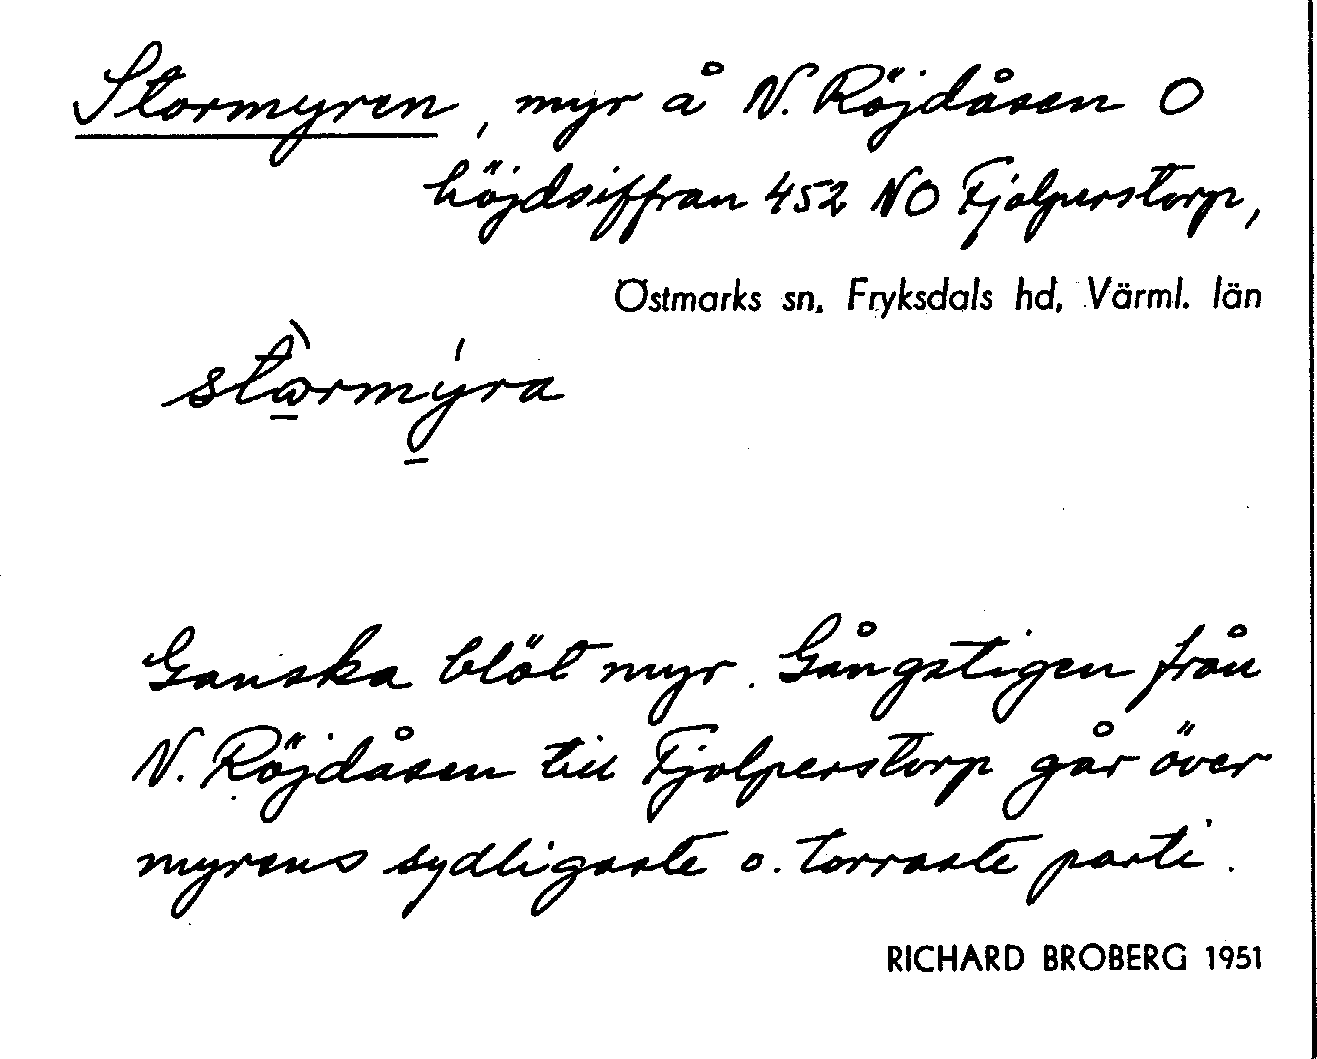 Stormyren, myr å N. Röjdåsen O
höjdsiffran 452 NO Fjolperstorp,
Östmarks sn, Fryksdals hd, Värml. län
stωrmýra
Ganska blöt myr. Gångstigen från
N. Röjdåsen till Fjolperstorp går över
myrens sydligaste o. torraste parti.
RICHARD BROBERG 1951